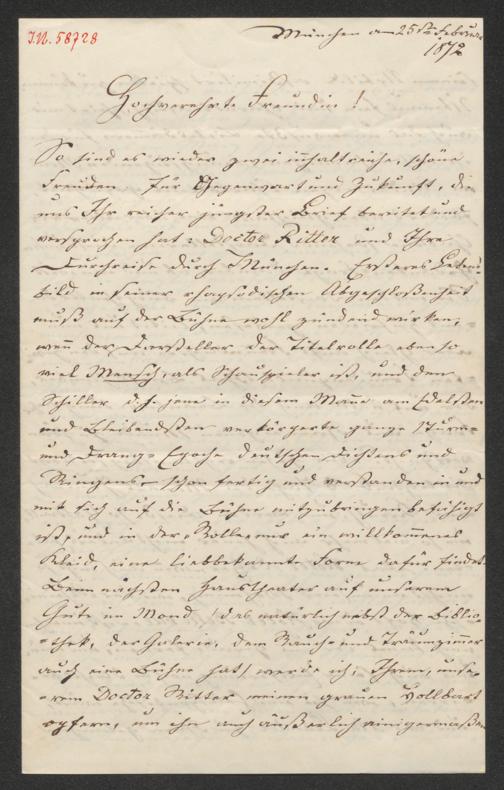 I.N. 58728
München am 25ten Februar
1872
Hochverehrte Freundin!
So sind es wieder zwei inhaltreiche, schöne
Freuden für Gegenwart und Zukunft, die
uns Ihr reicher jüngster Brief bereitet und
versprochen hat: Doctor Ritter und Ihre
Durchreise durch München. Ersteres
bild in seiner rhapsodischen Abgeschloßenheit
muß auf der Bühne wohl zündend wirken,
wenn der Darsteller der Titelrolle ebenso
viel Mensch, als Schauspieler ist, und den
Schiller d. h. jene in diesem Manne am Edelsten
und Bleibendsten verkörperte ganze Sturm-
und Drang-Epoche deutschen Dichtens und
Ringens schon fertig und verstanden in und
mit sich auf die Bühne mitzubringen befähigt
ist, und in der Rolle nur ein willkommenes
Kleid, eine liebbekannte Form dafür findet.
Beim nächsten Haustheater auf unserem
Gute im Mond (das natürlich nebst der Biblio-
-thek, der Galerie, dem Rauch- und Träumzimmer
auch eine Bühne hat) werde ich, Ihrem, unse-
-rem Doctor Ritter meinen grauen Vollbart
opfern, um ihn auch äußerlich einigermaßen